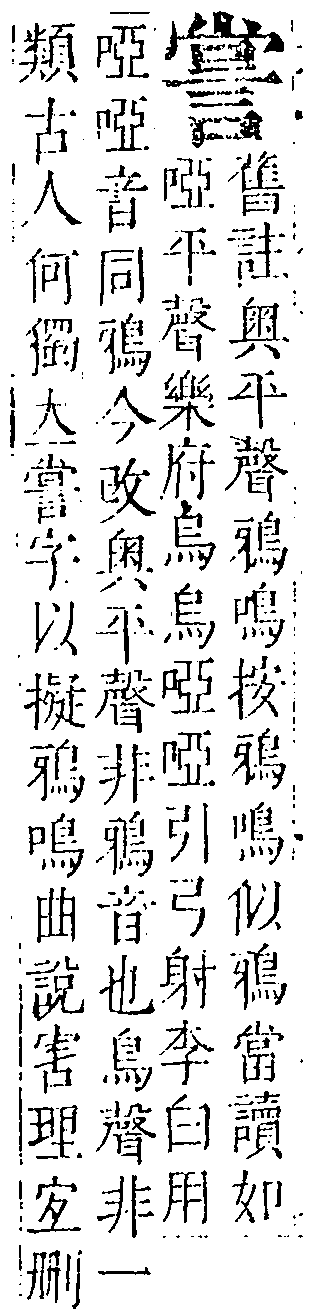 舊註奧平聲鴉鳴按鴉鳴似鴉當讀如
啞平聲樂府烏烏啞啞引弓射李白用
啞啞音同鴉今改奧平聲非鴉音也鳥聲非一
類古人何獨立字以擬鴉鳴曲說害理宐刪